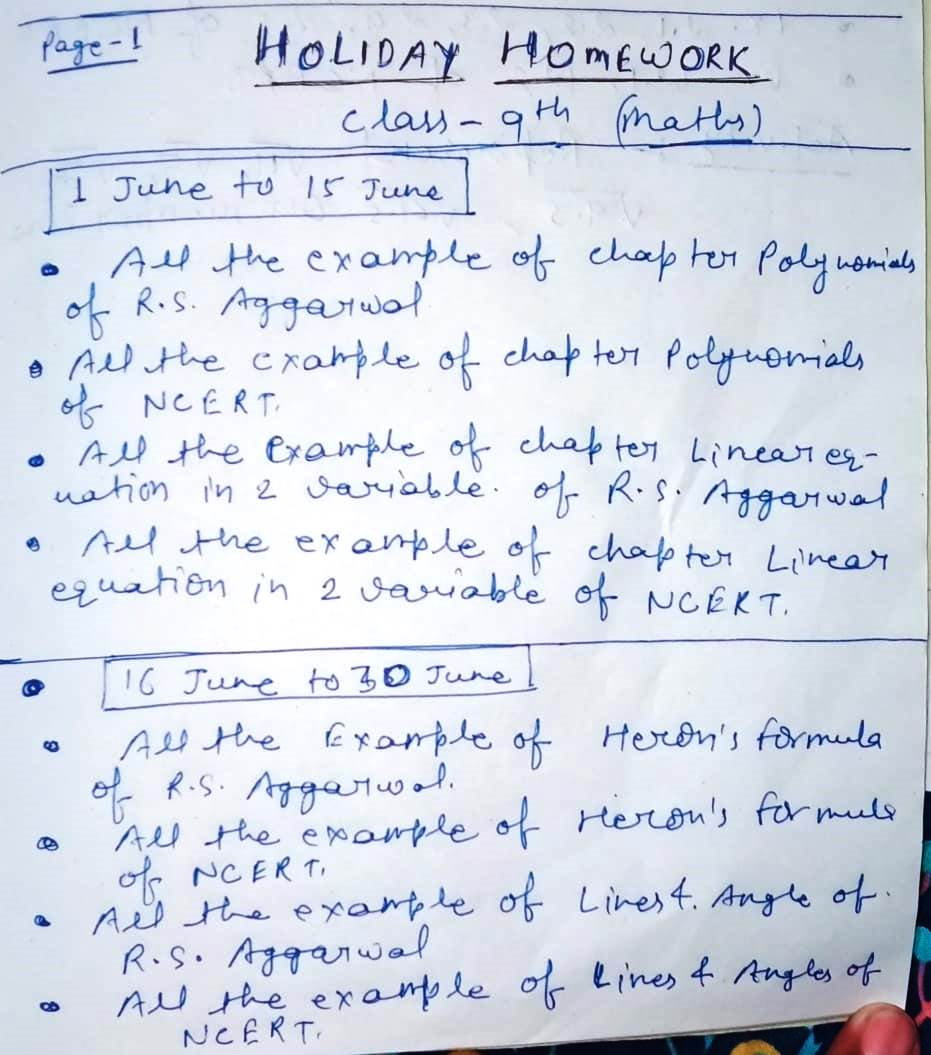 Page-1
HOLIDAY HOMEWORK
Class - 9th (Maths)
1 June to 15 June
• All the example of chapter Polynomials
of R.S. Aggarwal
• All the example of chapter Polynomials
of NCERT.
• All the Example of chapter Linear eq-
uation in 2 variable. of R.S. Aggarwal
• All the example of chapter Linear
equation in 2 variable of NCERT.
• 16 June to 30 June
• All the Example of Heron's formula
of R.S. Aggarwal.
• All the example of Heron's formula
of NCERT.
• All the example of Lines &. Angle of.
R.S. Aggarwal
• All the example of Lines & Angles of
NCERT.